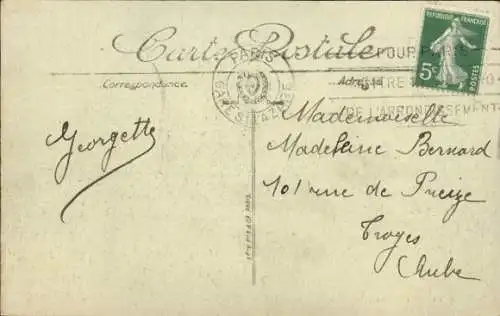 Carte Postale
Correspondance
Adresse
REPUBLIQUE FRANÇAISE
5c
POSTES
PARIS
GARE ST LAZARE
POUR
DE L'ARRONDISSEMENT
Georgette
Mademoiselle
Madeleine Bernard
101 rue de Preize
Troyes
(Aube